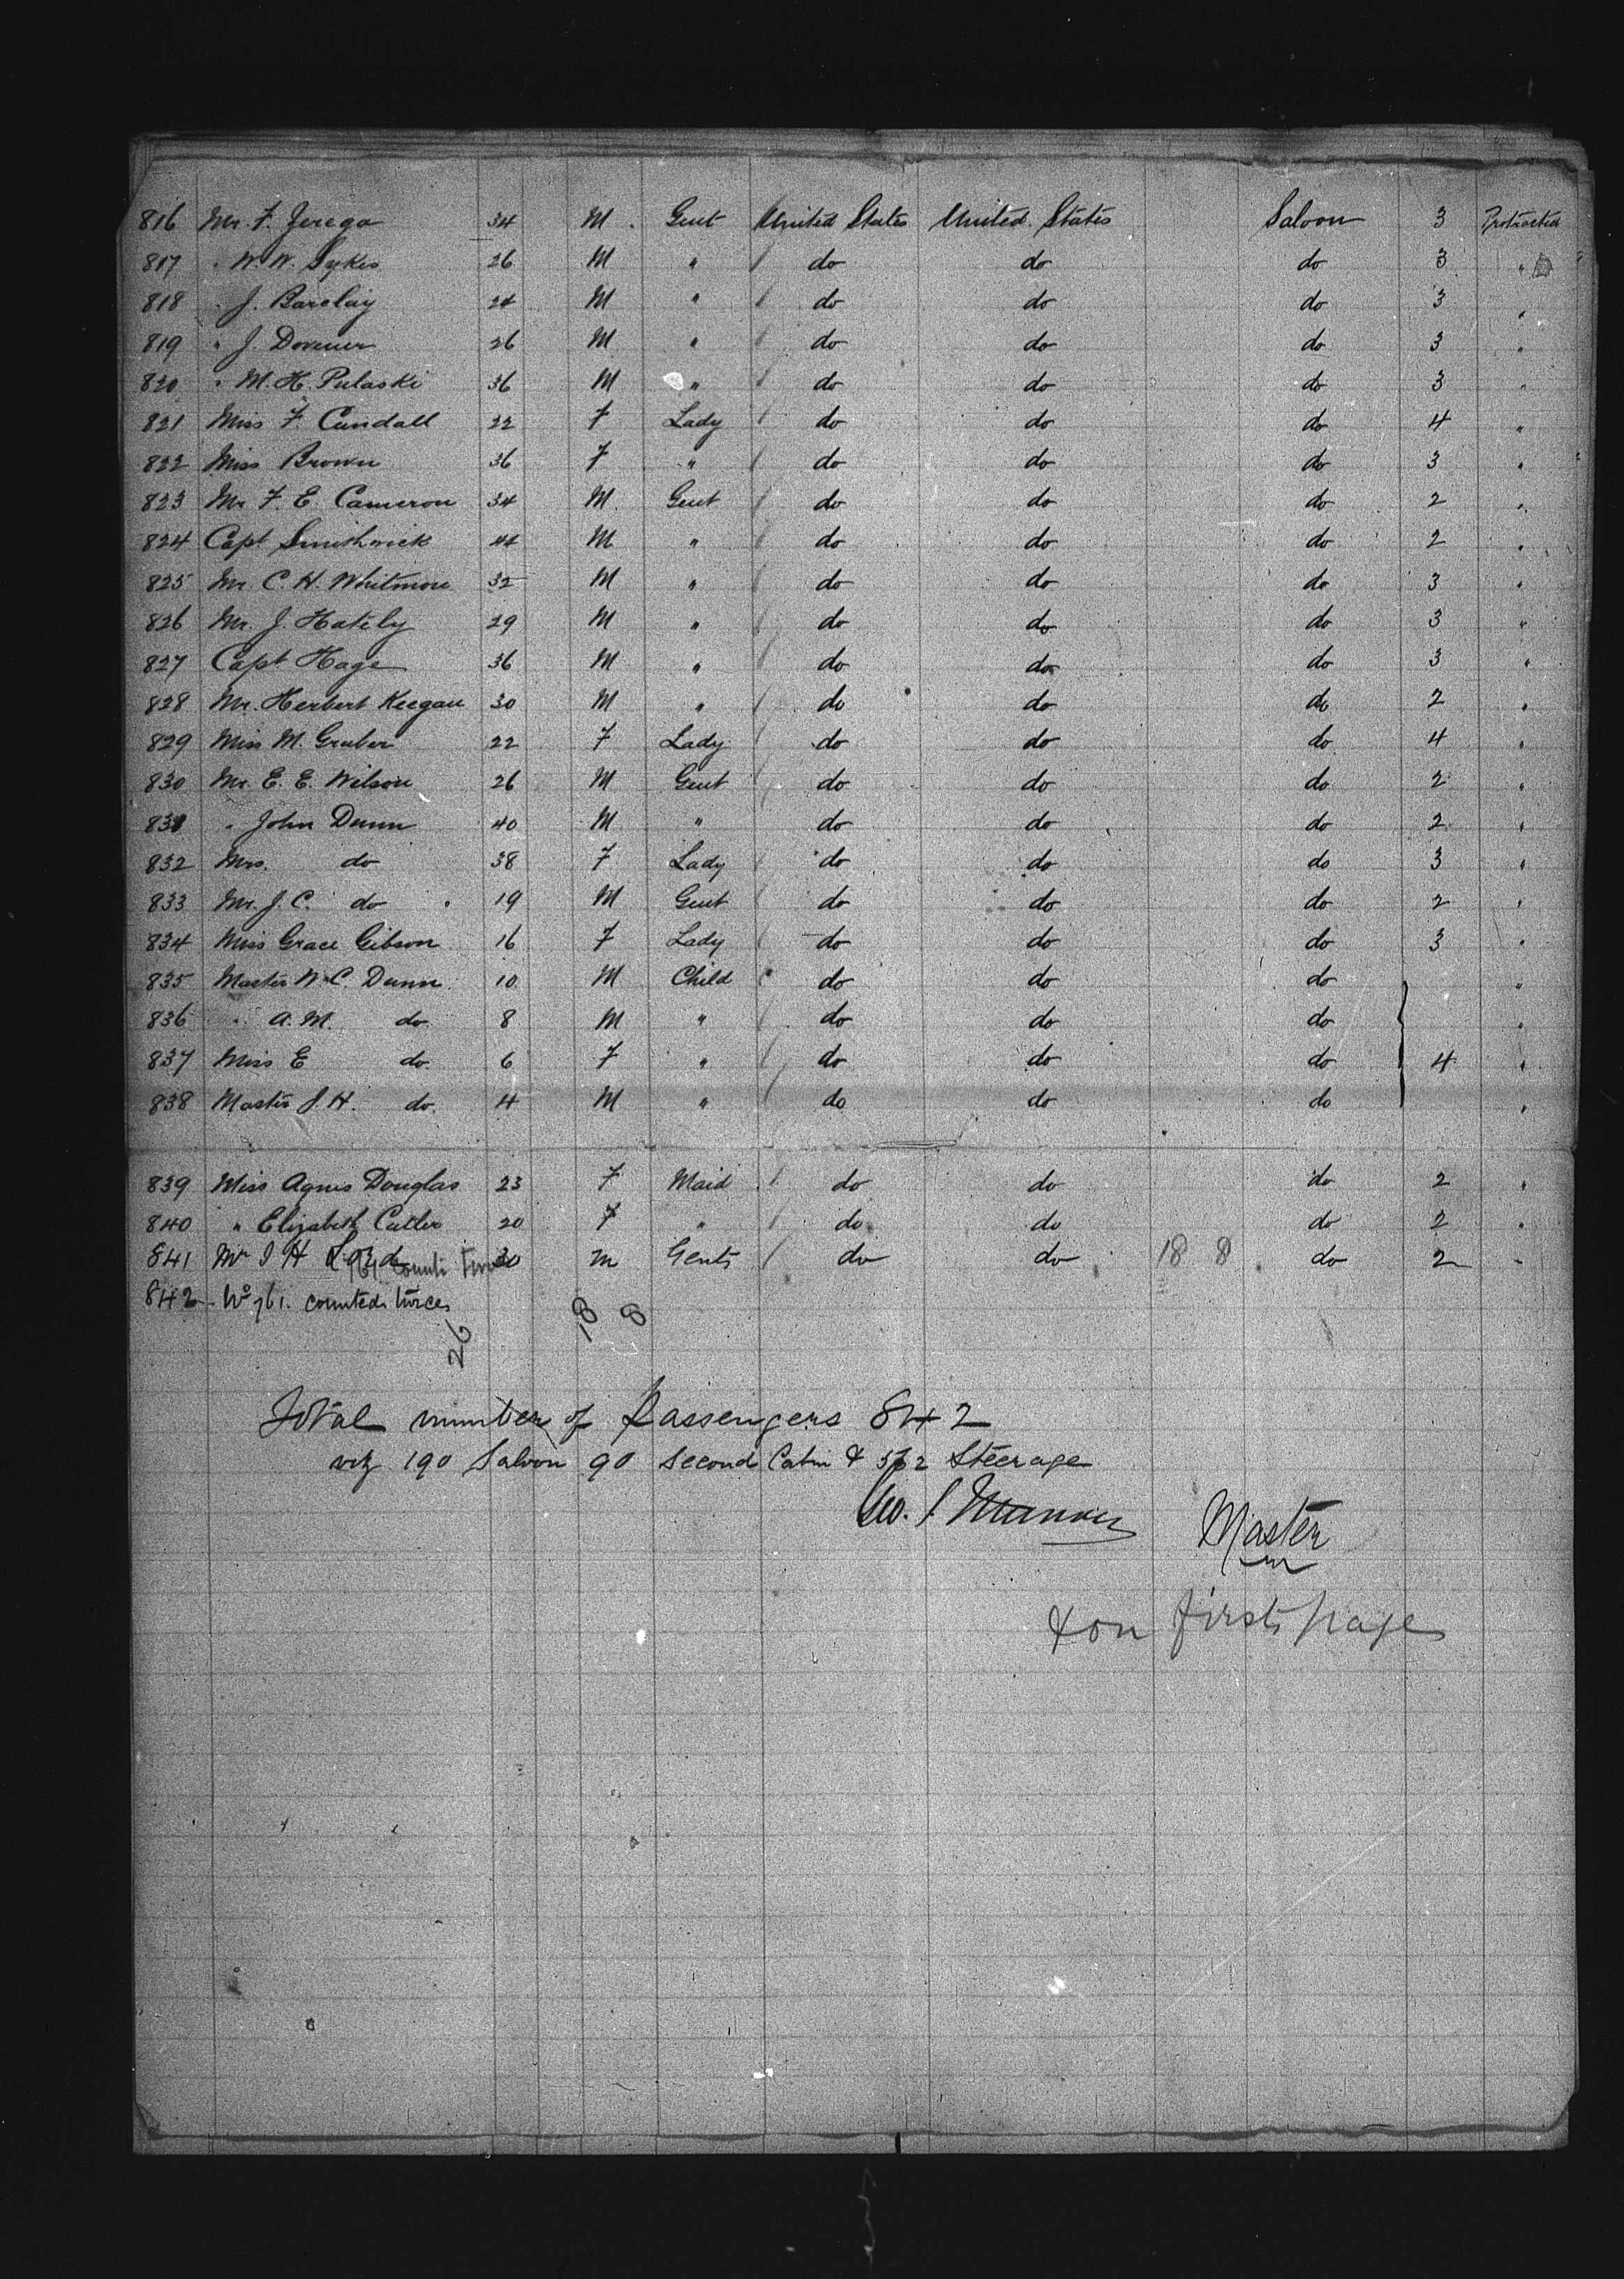 816 Mr. F. Jerega 34 M. Gent United States United States Saloon 3 Protracted
817 " W. W. Sykes 26 M " do do do 3 "
818 " J. Barclay 24 M " do do do 3 "
819 " J. Dovener 26 M " do do do 3 "
820 " M. H. Pulaski 36 M " do do do 3 "
821 Miss F Cundall 22 F Lady do do do 4 "
822 Miss Brown 36 F " do do do 3 "
823 Mr F. E. Cameron 34 M. Gent do do do 2 "
824 Capt Smithwick 44 M " do do do 2 "
825 Mr C. H. Whitmore 32 M " do do do 3 "
826 Mr. J. Hately 29 M " do do do 3 "
827 Capt Hage 36 M " do do do 3 "
828 Mr. Herbert Keegan 30 M " do do do 2 "
829 Miss M. Gruber 22 F Lady do do do 4 "
830 Mr. E. E. Wilson 26 M Gent do do do 2 "
831 " John Dunn 40 M " do do do 2 "
832 Mrs. do 38 F Lady do do do 3 "
833 Mr. J. C. do 19 M Gent do do do 2 "
834 Miss Grace Gibson 16 F Lady do do do 3 "
835 Master W. C. Dunn 10 M Child do do do "
836 " A. M. do 8 M " do do do "
837 Miss E do 6 F " do do do 4 "
838 Master J. H. do 4 M " do do do "
839 Miss Agnes Douglas 23 F Maid do do do 2 "
840 " Elizabeth Cutler 20 F " do do do 2 "
841 Mr I H 30 m Gents do do 18 8 do 2 "
842 No 761. counted twice
26 18 8
Total number of Passengers 842
viz 190 Saloon 90 Second Cabin & 562 Steerage
Geo. S Master
& on first page